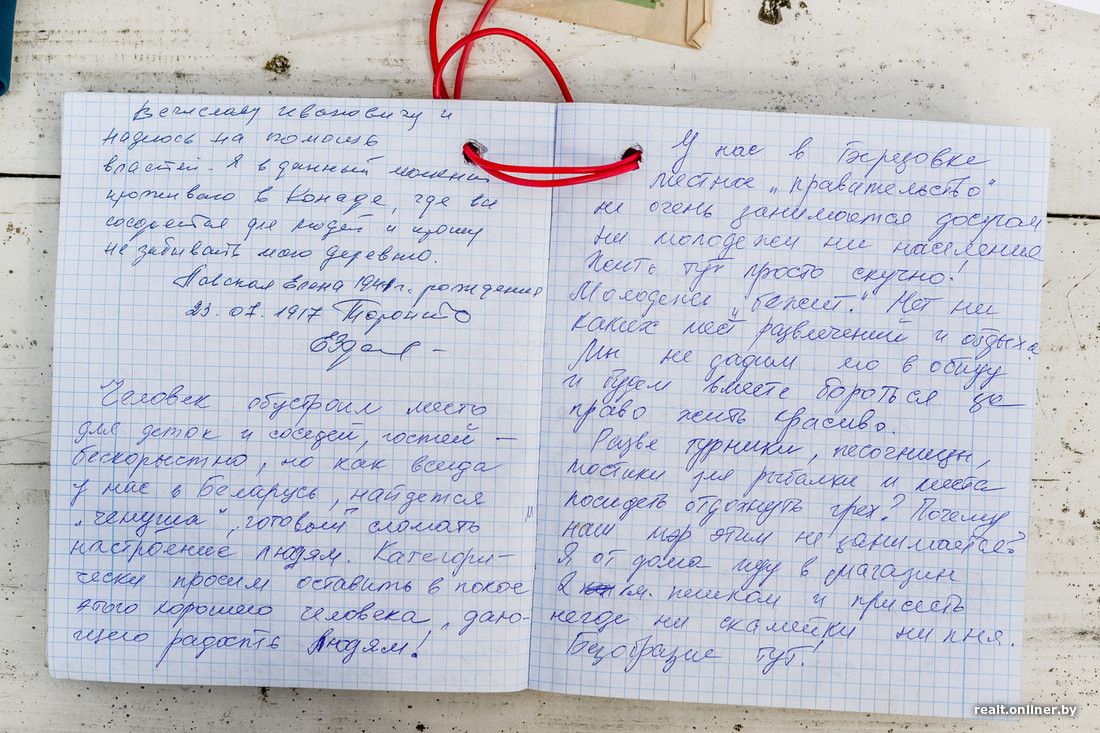 Вечиславу Ивановичу и
надеюсь на помощь
властей. Я в данный момент
проживаю в Конаде, где все
создается для людей и прошу
не забывать мою деревню.
Елена 1941 г. рождения
23.07.1917 Торонто
Человек обустроил место
для деток и соседей, гостей —
бескорыстно, но как всегда
у нас в Беларусь, найдется
„чинуша“, готовый сломать
настроение людям. Категори-
чески просим оставить в покое
этого хорошего человека, даю-
щего радость людям!
У нас в Березовке
местное „правительство“
не очень занимается досугом
ни молодежи ни населения
Жить тут просто скучно!
Молодежь „бежит“. Нет ни
каких мест развлечений и отдыха
Мы не дадим его в обиду
и будем вместе бороться за
право жить красиво.
Разве турники, песочницы,
мостики для рыбалки и места
посидеть отдохнуть грех? Почему
наш мэр этим не занимается?
Я от дома иду в магазин
2 км. пешком и присесть
негде ни скамейки ни пня.
Безобразие тут!
realt.onliner.by